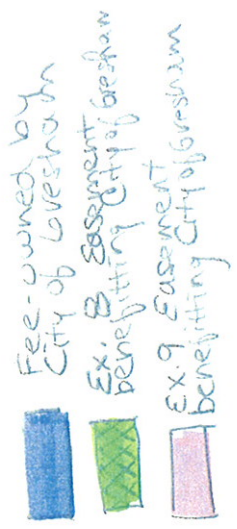 Fee-owned by
City of Gresham
Ex. 8 Easement
benefitting City of Gresham
Ex. 9 Easement
benefitting City of Gresham